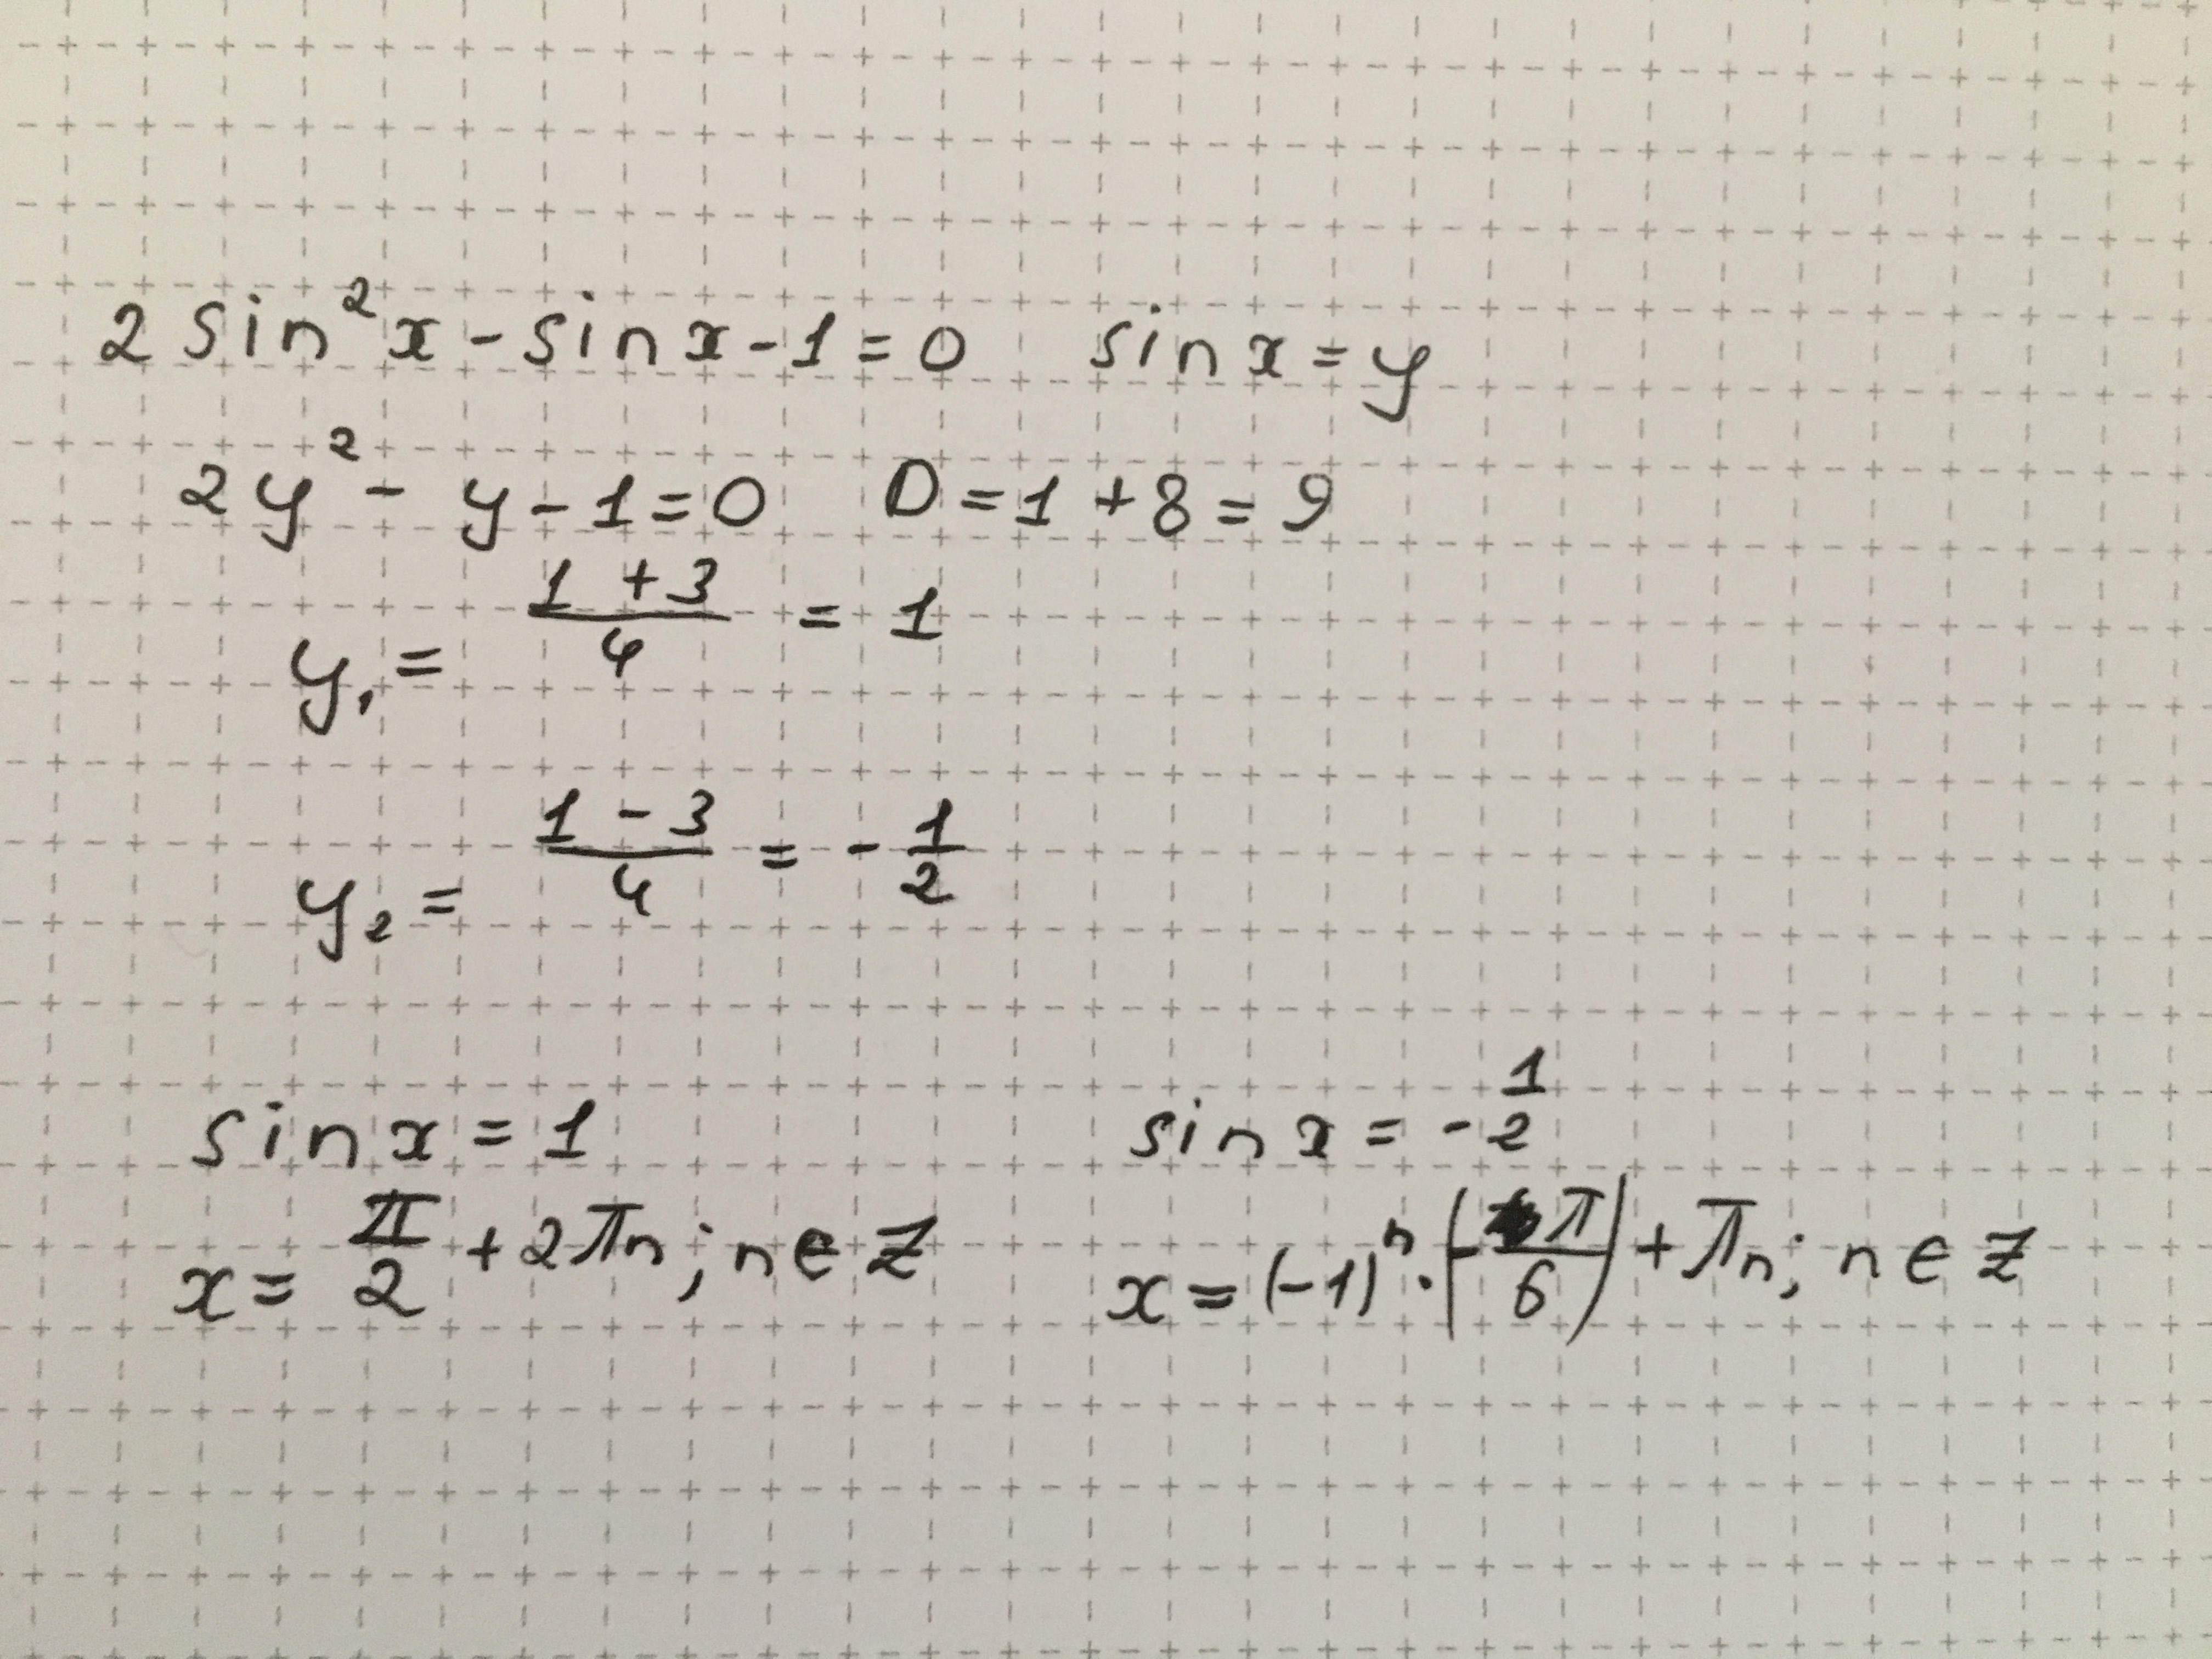 2 sin²x - sin x - 1 = 0 sin x = y
2y² - y - 1 = 0 D = 1 + 8 = 9
y₁ = (1 + 3)/4 = 1
y₂ = (1 - 3)/4 = - 1/2
sin x = 1 sin x = - 1/2
x = π/2 + 2πn; n ∈ Z x = (-1)ⁿ · (- π/6) + πn; n ∈ Z